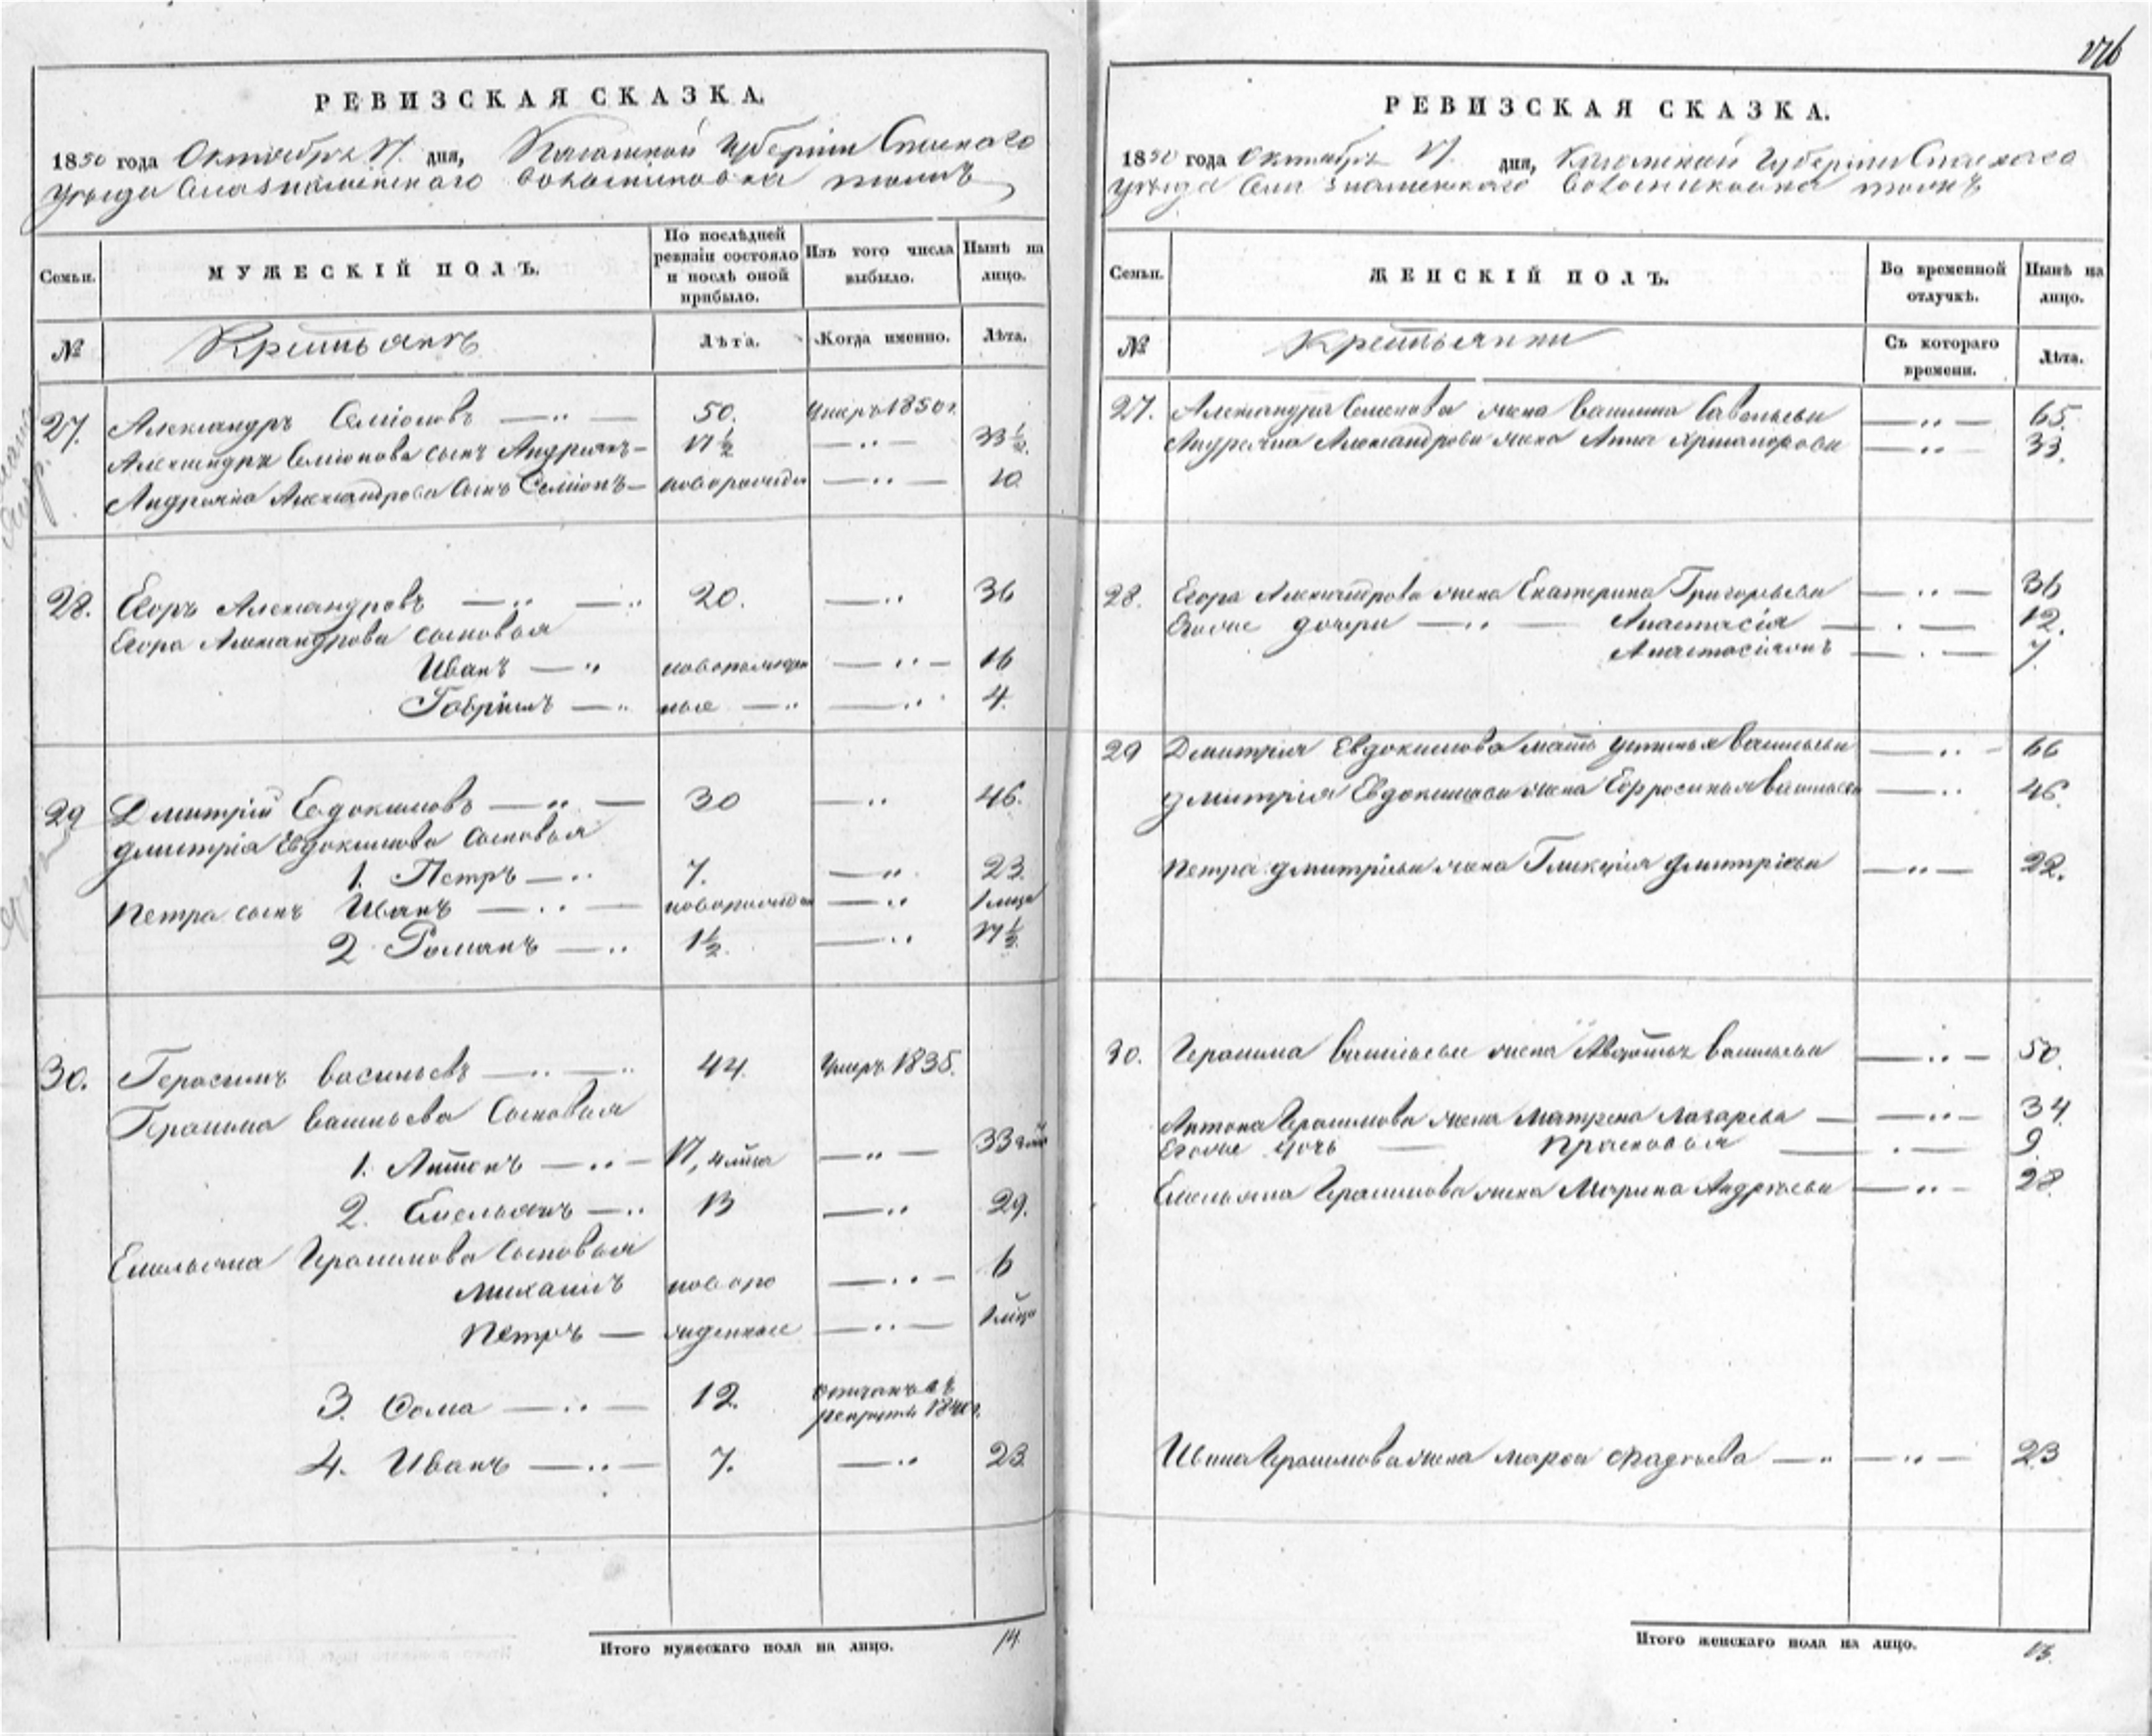 176
РЕВИЗСКАЯ СКАЗКА.
1850 года Октября 17. дня, Казанской Губернии Спаскаго
уезда Села Знаменскаго тожъ
Семьи.
МУЖЕСКІЙ ПОЛЪ.
По послѣдней ревизіи состояло и послѣ оной прибыло.
Изъ того числа выбыло.
Нынѣ на лицо.
№
Крестьянъ
Лѣта.
Когда именно.
Лѣта.
27. Александръ Семіоновъ — .. — 50. умеръ 1850 г.
Александра Семионова сынъ Андриянъ — 17 1/2 — .. — 33 1/2.
Андрияна Александрова сынъ Семіонъ — новорожден — .. — 10
28. Егоръ Александровъ — .. — .. 20. — .. 36
Егора Александрова сыновья
Иванъ — .. новорожден — .. — 16
Гаврiилъ — .. ные — .. — .. 4.
29 Дмитрій Евдокимовъ — .. — 30 — .. 46.
Дмитрія Евдокимова сыновья
1. Петръ — .. 7. — .. 23.
Петра сынъ Иванъ — .. — новорожден — .. 1 меца
2 Романъ — .. 1 1/2. — .. 17 1/2.
30. Герасимъ Васильевъ — .. — .. 44. умеръ 1835.
Герасима Васильева Сыновья
1. Антонъ — .. — 17, 4 мца — .. — 33
2. Емельянъ — .. 13 — .. 29.
Емельяна Герасимова Сыновья
Михаилъ новоро — .. — 6
Петръ — жденные — .. — 1 мца
3. Ѳома — .. — 12. рекруты 1840 г.
4. Иванъ — .. — 7. — .. 23
Итого мужескаго пола на лицо. 14.
РЕВИЗСКАЯ СКАЗКА.
1850 года Октября 17. дня, Казанской Губерніи Спаскаго
уезда Села Знаменскаго тожъ
Семьи.
ЖЕНСКІЙ ПОЛЪ.
Во временной отлучкѣ.
Нынѣ на лицо.
№
Крестьянки
Съ котораго времени.
Лѣта.
27. Александра Семенова жена Савельева — .. — 65.
Андрияна Александрова жена Анна — .. 33.
28. Егора Александрова жена Екатерина Григорьева — .. — 36
Егоже дочери — .. — Анастасія — . — 12.
— . — 7.
29 Дмитрия Евдокимова мать Устинья Васильева — .. — 66
Дмитрия Евдокимова жена Ефросинья Васильева — .. 46.
Петра Дмитріева жена Гликерія Дмитріева — .. — 22.
30. Герасима Васильева жена Авдотья Васильева — .. — 50.
Антона Герасимова жена Матрена Лазарева — — .. — 34.
Егоже дочь — Прасковья — . — 9.
Емельяна Герасимова жена Марина Андреева — .. — 28.
Ивана Герасимова жена Марѳа Фадѣева — .. — .. — 23
Итого женскаго пола на лицо. 13.